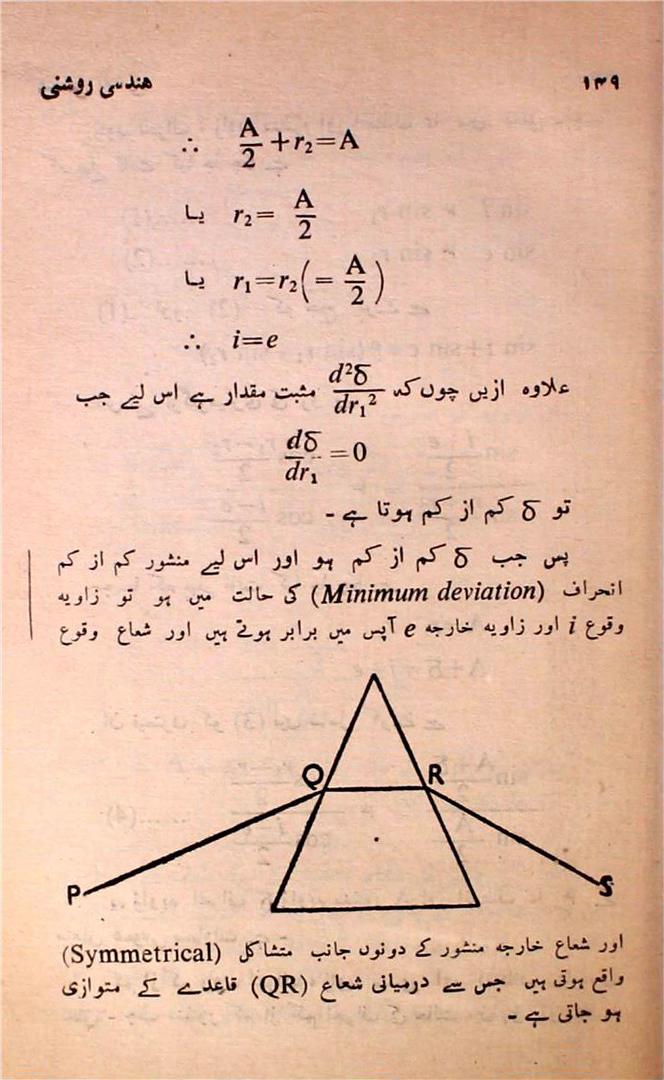 ۱۴۹ ہندسی روشنی
∴ A/2 + r₂ = A
یا r₂ = A/2
یا r₁ = r₂ (= A/2)
∴ i = e
علاوہ ازیں چوں کہ d²δ/dr₁² مثبت مقدار ہے اس لیے جب
dδ/dr₁ = 0
تو δ کم از کم ہوتا ہے ۔
پس جب δ کم از کم ہو اور اس لیے منشور کم از کم
انحراف (Minimum deviation) کی حالت میں ہو تو زاویہ
وقوع i اور زاویہ خارجہ e آپس میں برابر ہوتے ہیں اور شعاع وقوع
Q R
P S
اور شعاع خارجہ منشور کے دونوں جانب متشاکل (Symmetrical)
واقع ہوتی ہیں جس سے درمیانی شعاع (QR) قاعدے کے متوازی
ہو جاتی ہے ۔